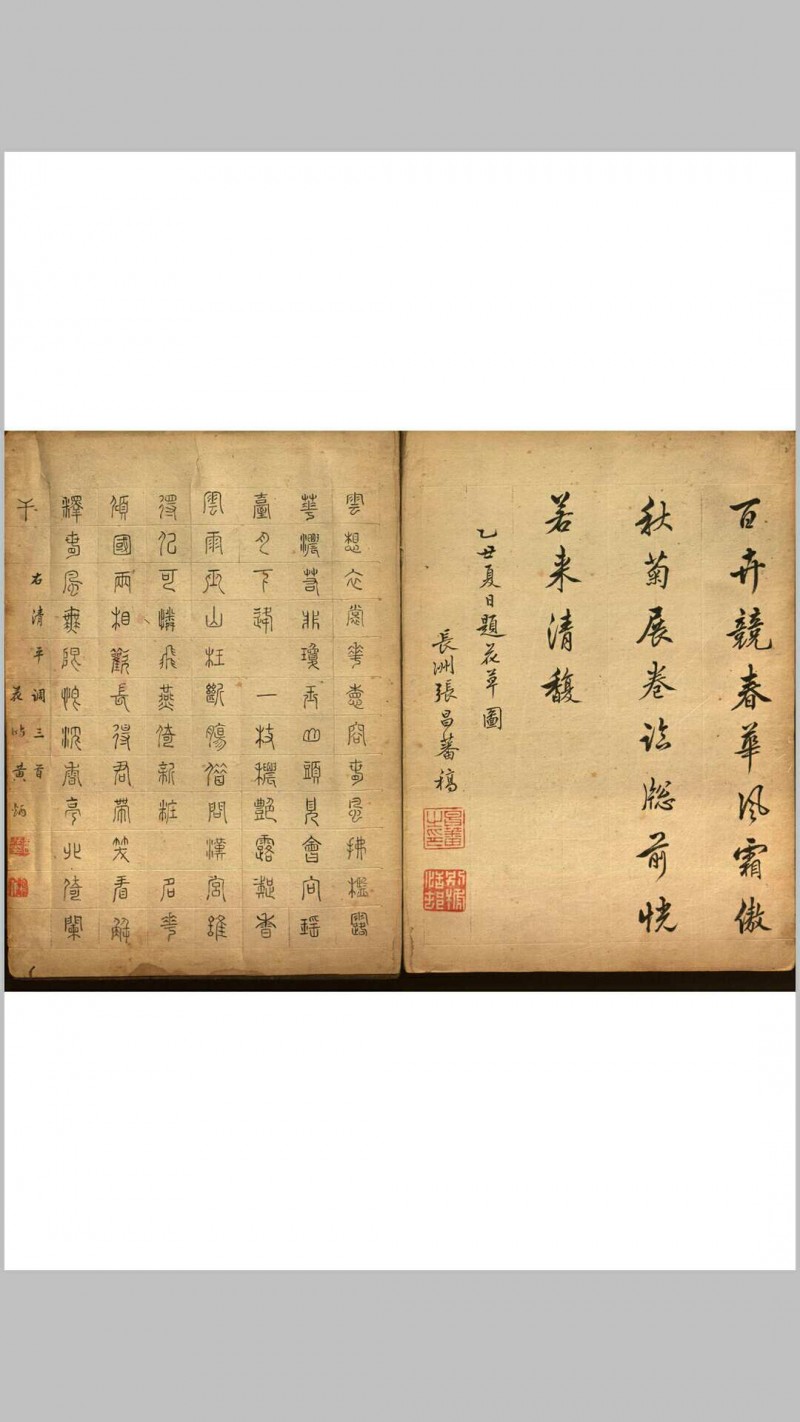 百卉競春華風霜傲
秋菊展卷臨牕前恍
若来清馥
乙丑夏日題花草圖
長洲張昌蕃稿
雲想衣裳花想容春風拂檻露
華濃若非瓊玉山頭見會向瑶
臺月下逢 一枝穠艷露凝香
雲雨巫山枉斷腸借問漢宮誰
得似可憐飛燕倚新粧 名花
傾國兩相歡長得君帶笑看解
釋春風無限恨沈香亭北倚闌
干
右清平调三首
黄炳